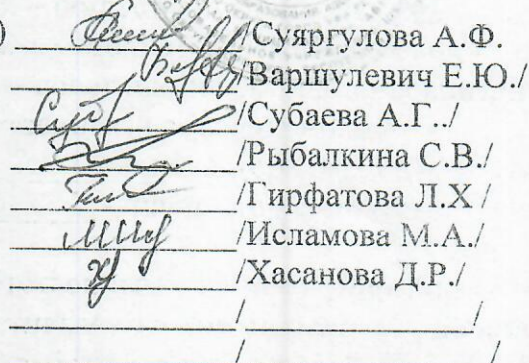 ) /Суяргулова А.Ф.
/Варшулевич Е.Ю./
/Субаева А.Г../
/Рыбалкина С.В./
/Гирфатова Л.Х /
/Исламова М.А./
/Хасанова Д.Р./
/ /
/ /